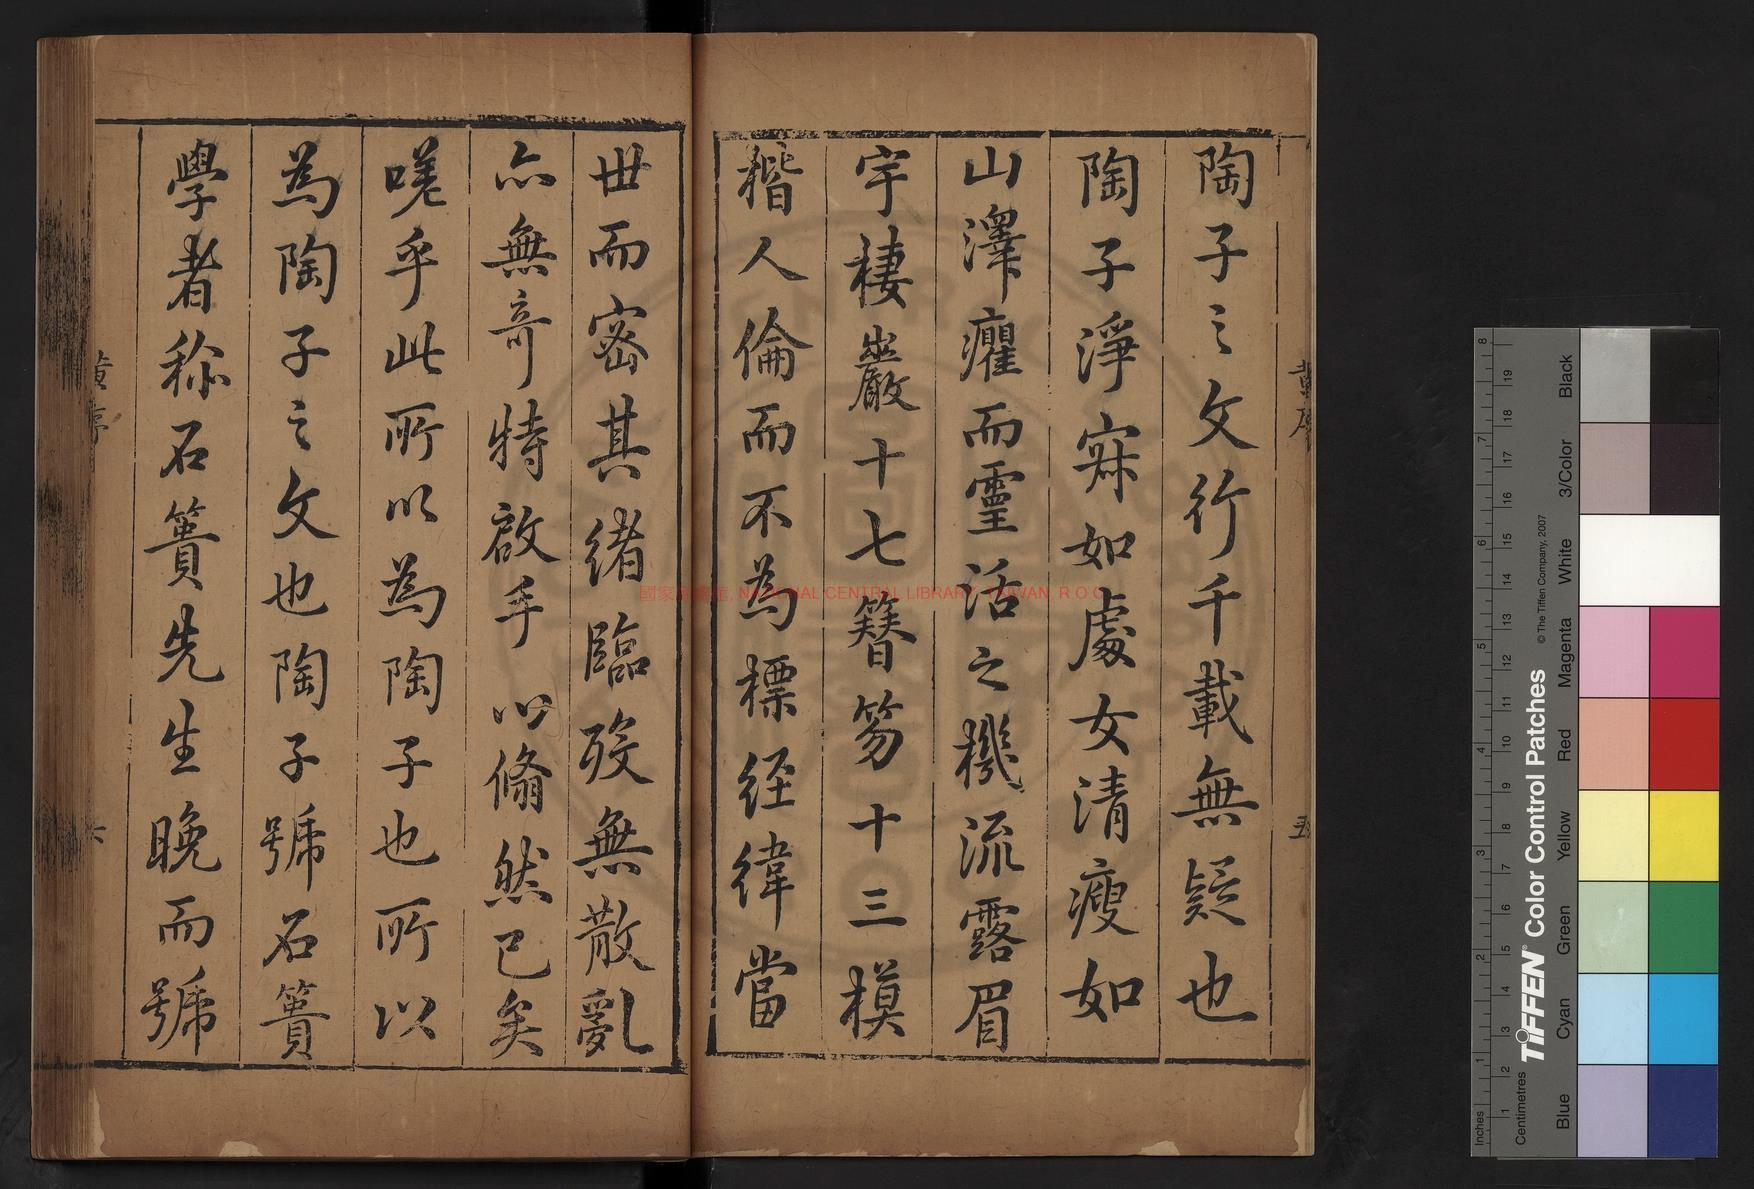 陶子之文行千載無疑也
陶子淨寐如處女清瘦如
山澤癯而靈活之機流露眉
宇棲巖十七簪笏十三模
楷人倫而不為標經緯當
世而密其緒臨歿無散亂
亦無奇特啟手 心翛然已矣
嗟乎此所以為陶子也所以
為陶子之文也陶子號石簣
學者稱石簣先生晚而號
黃序
五
黃序
六
國家圖書館, NATIONAL CENTRAL LIBRARY, TAIWAN, R O C
Inches
Centimetres
TIFFEN® Color Control Patches
© The Tiffen Company, 2007
Blue
Cyan
Green
Yellow
Red
Magenta
White
3/Color
Black